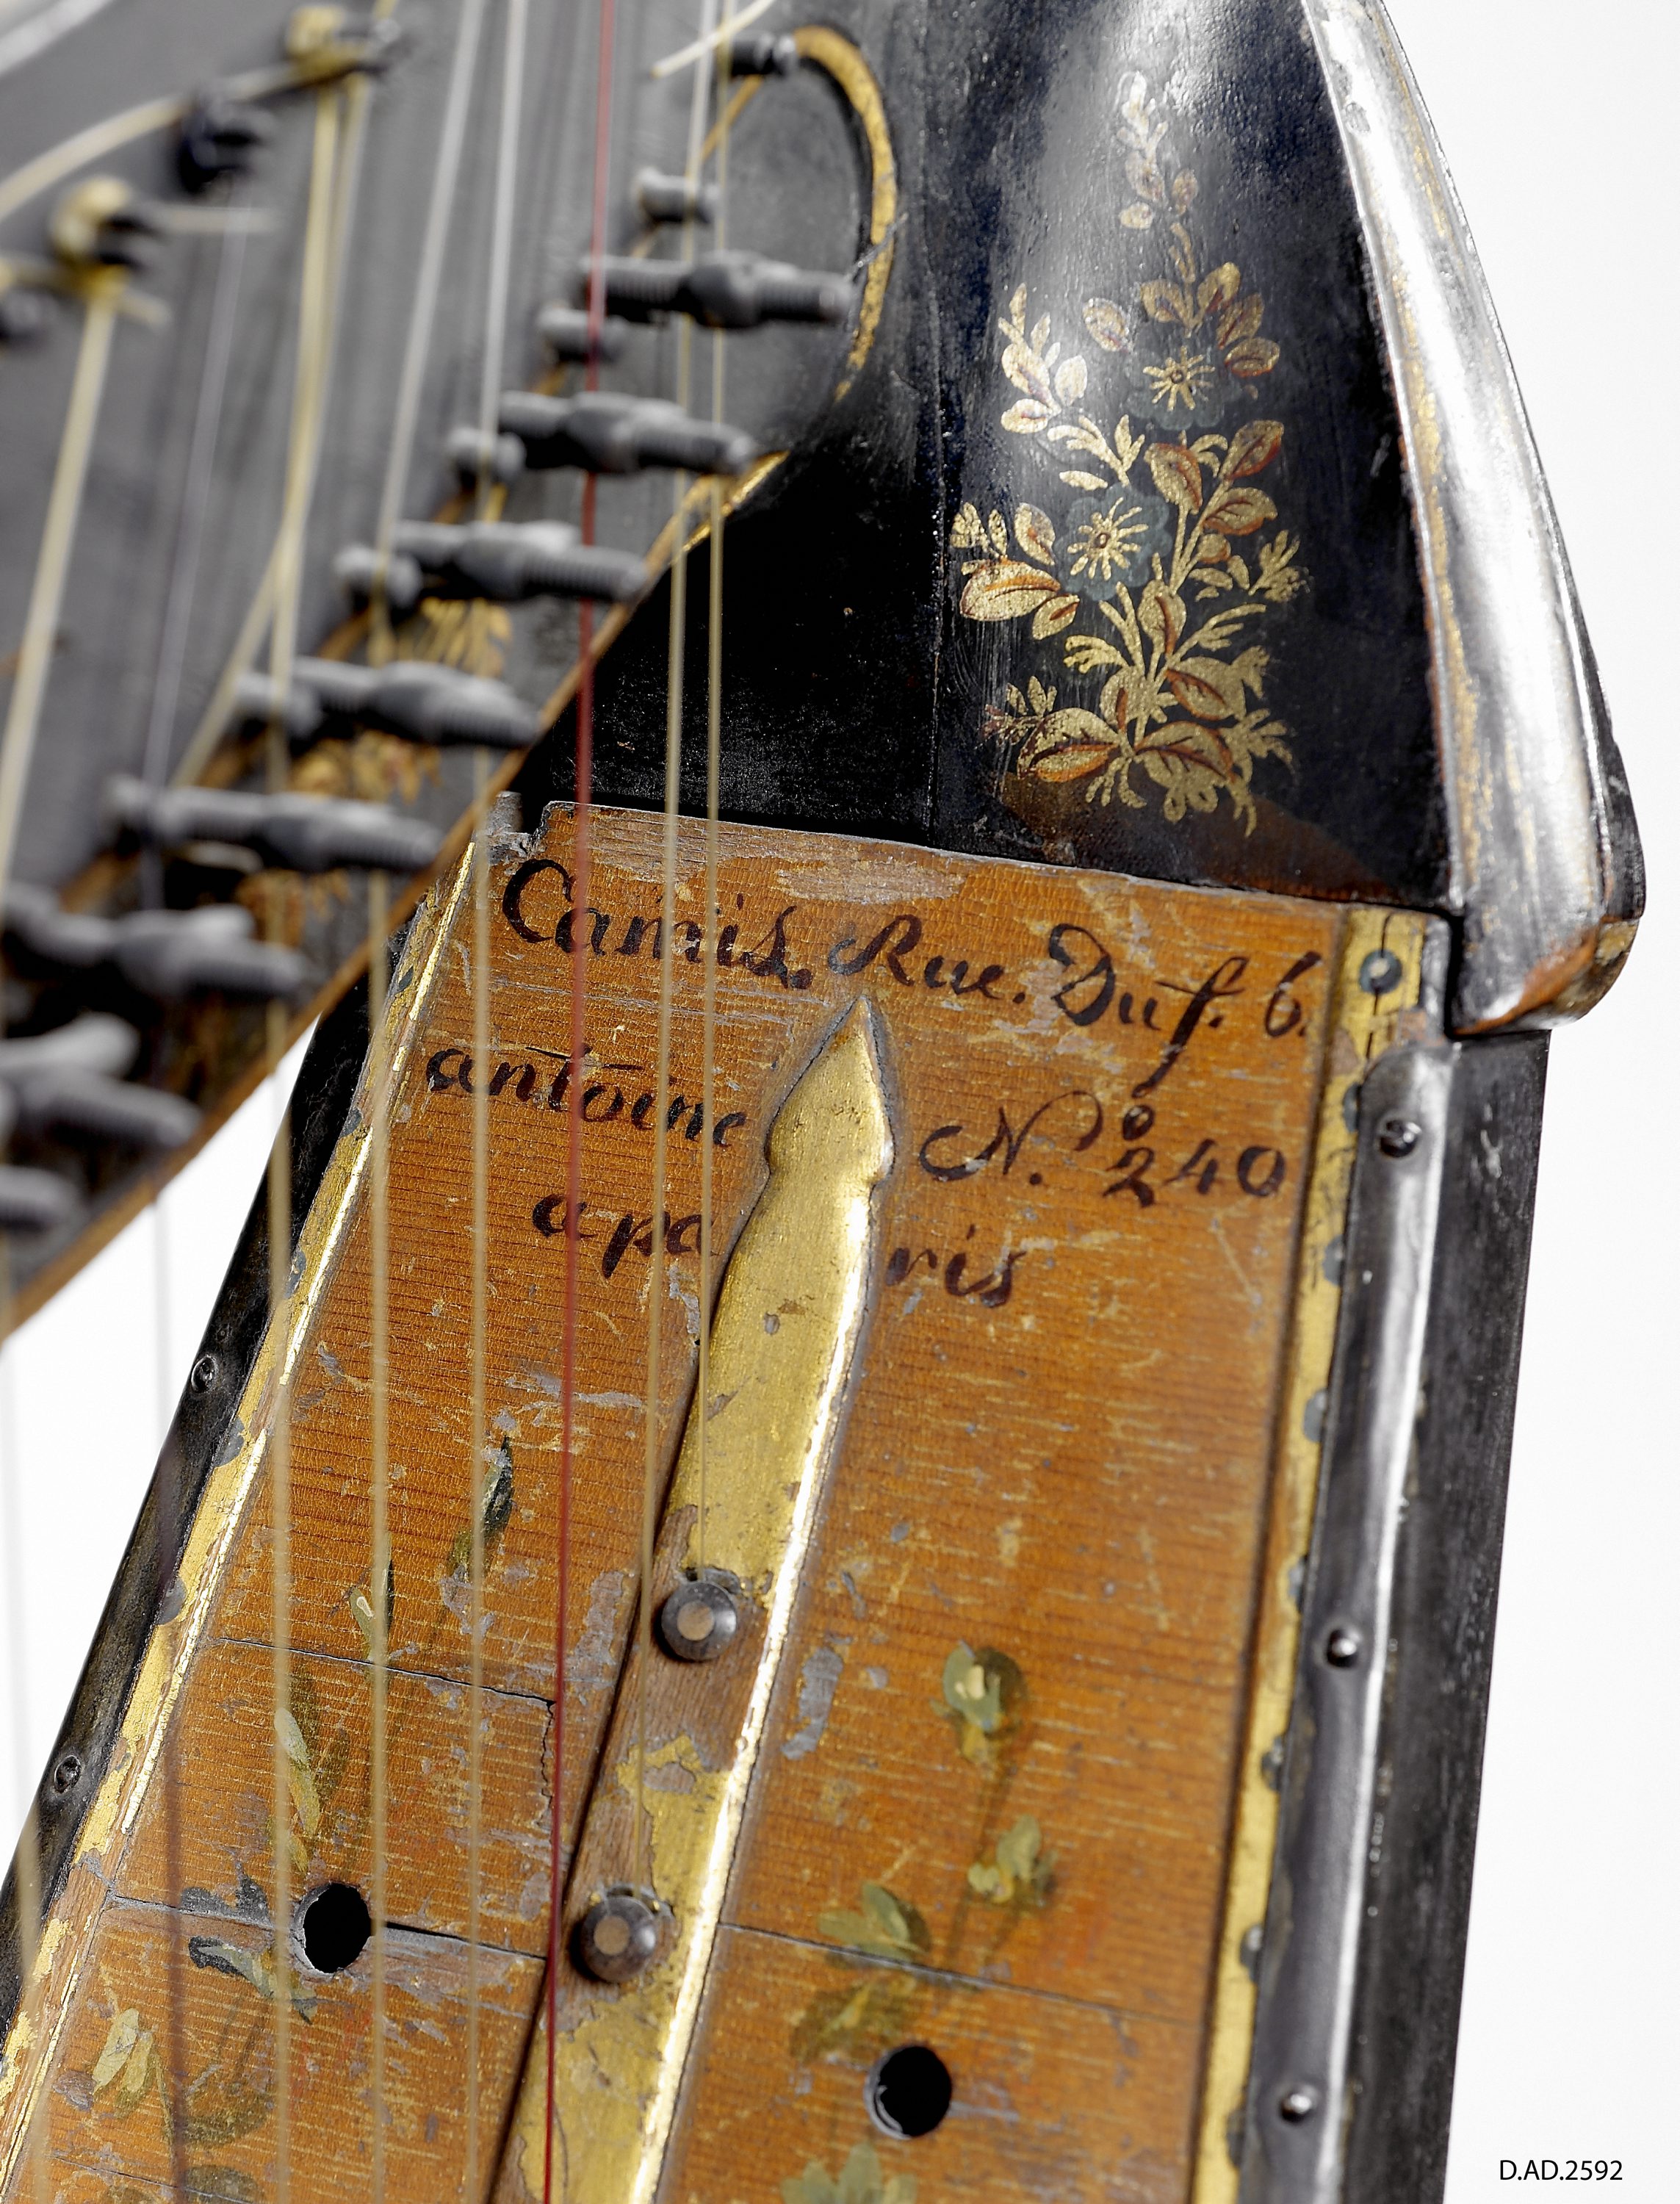 Camis, Rue. Du f. 6.
antoine N.º 240
a paris
D.AD.2592